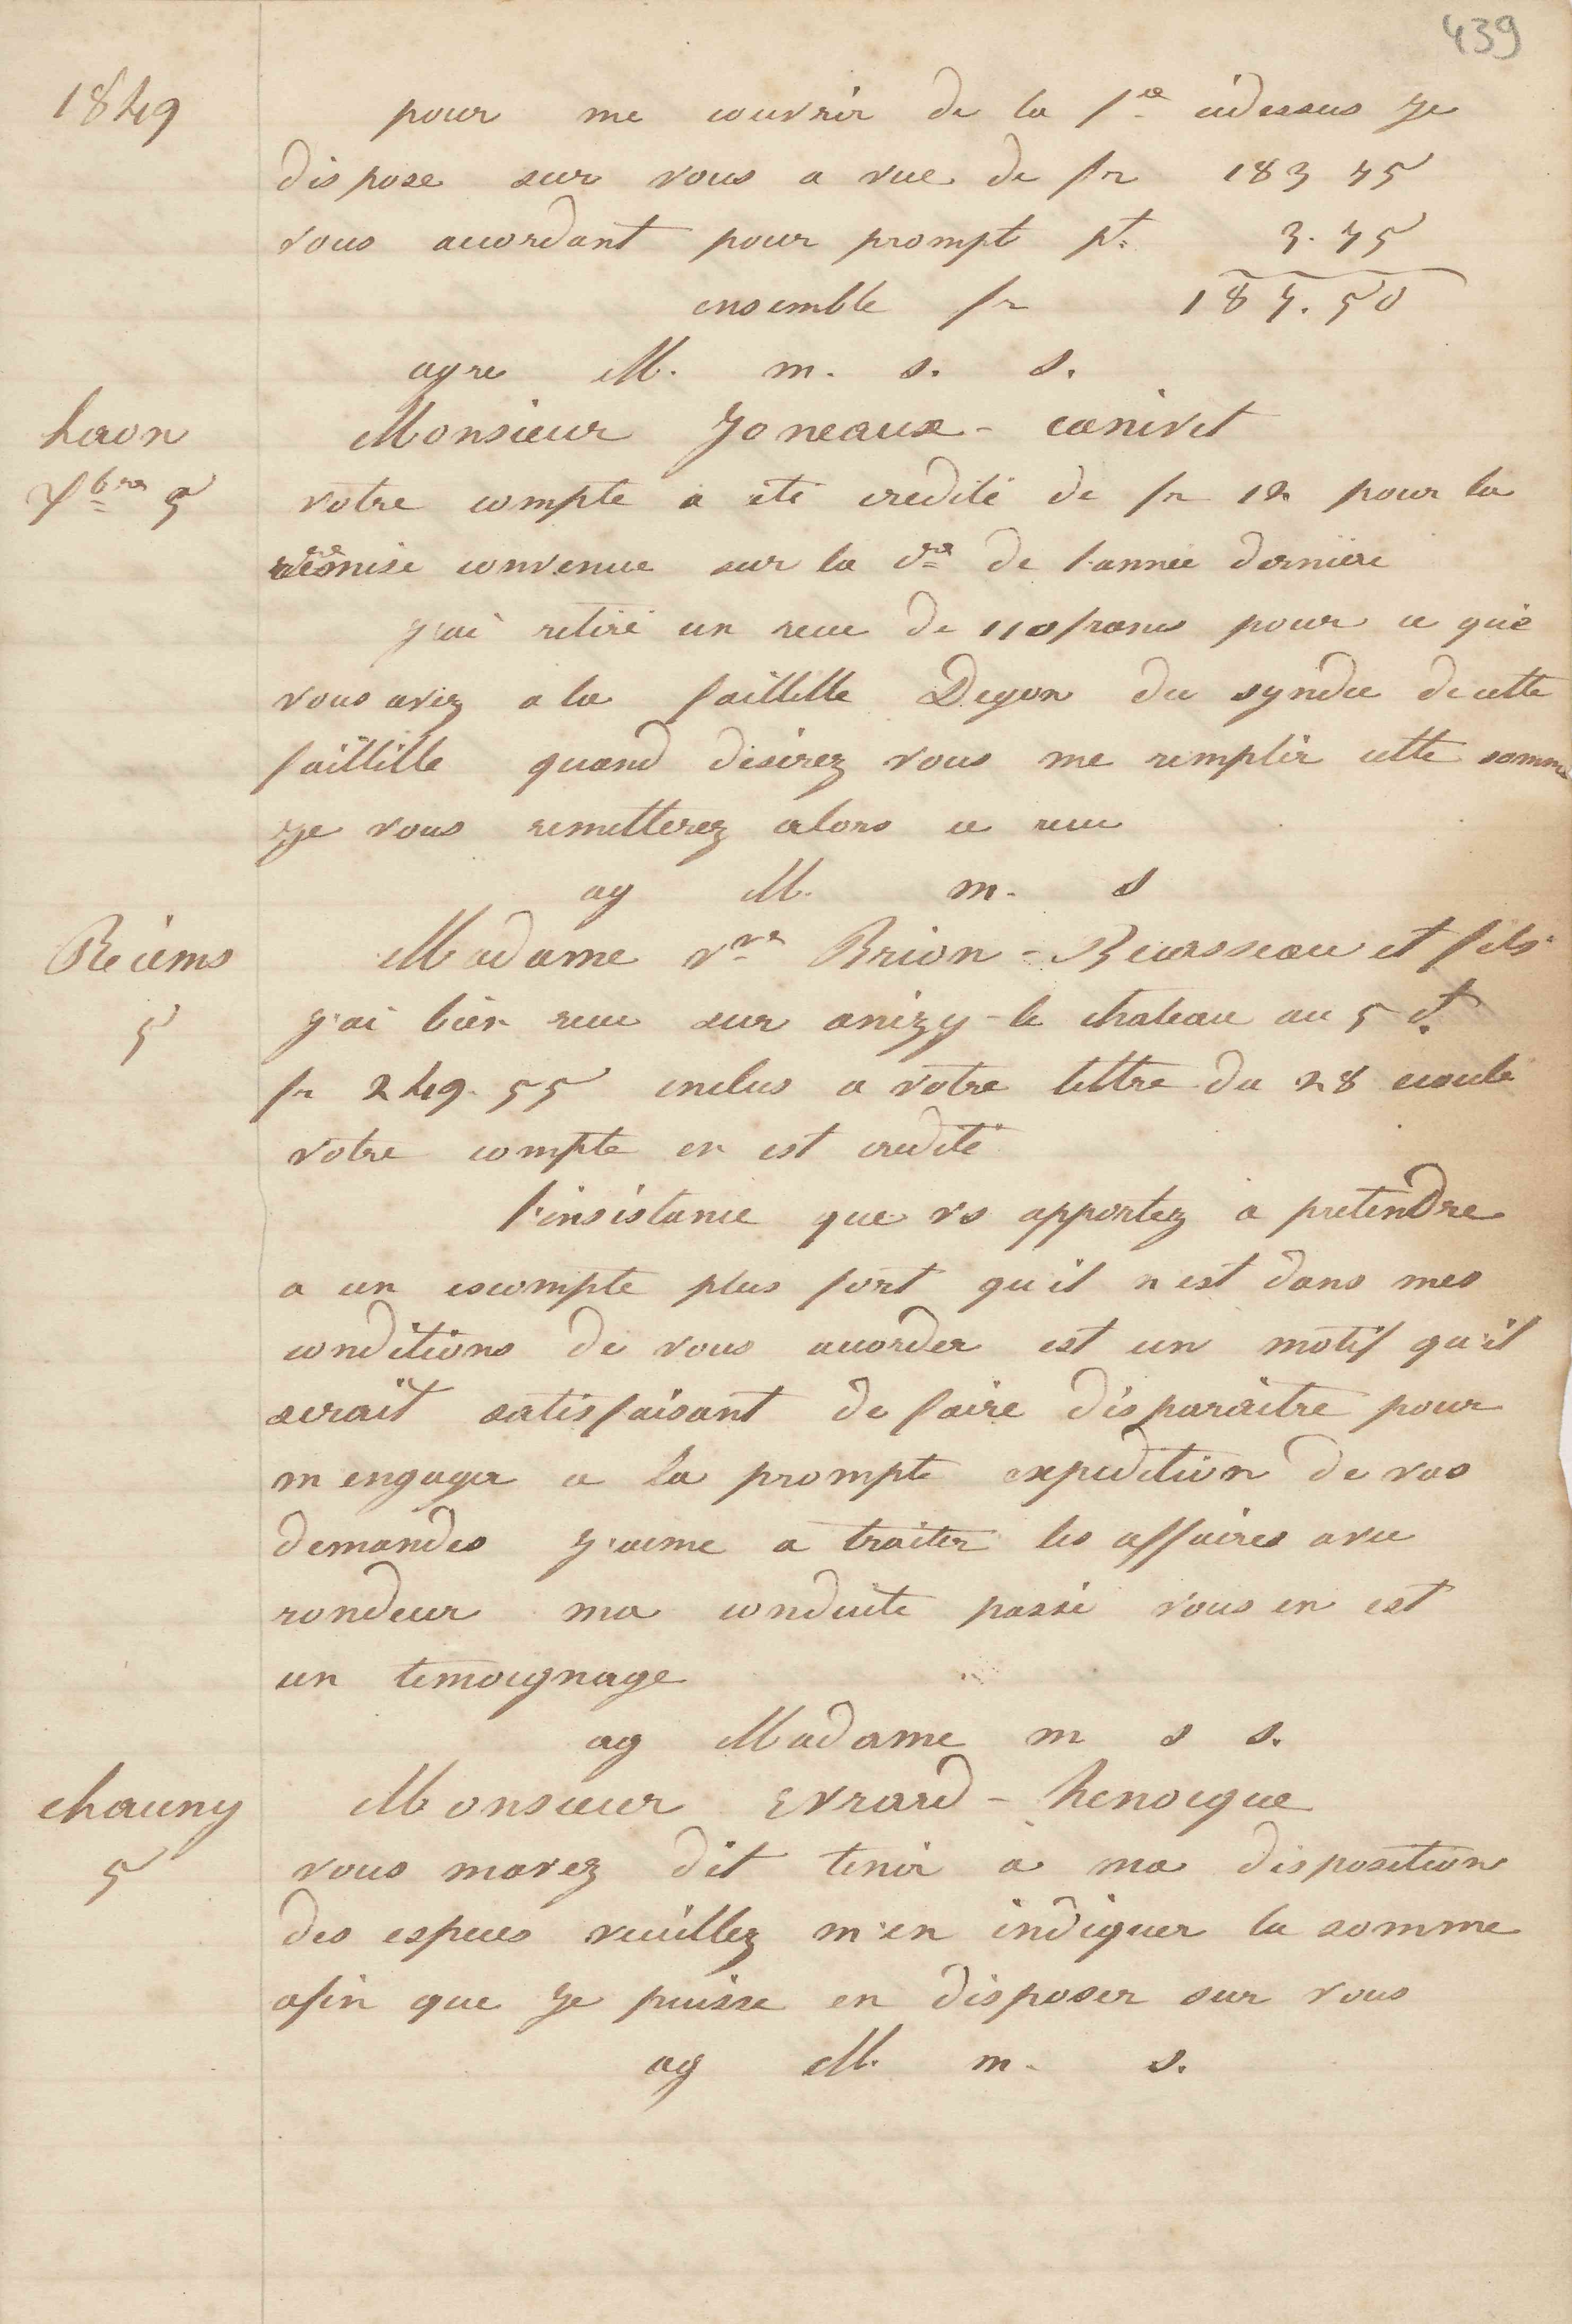 439
1849
pour me couvrir de la fre cidessus je
dispose sur vous a vue de fr 183 75
vous accordant pour prompt pt. 3.75
ensemble fr 187.50
agre M. m. s. s.
Laon
7bre 5
Monsieur Joneaux - canivet
votre compte a été credité de fr 12 pour la
remise convenue sur la dre de l'annee derniere
j'ai retiré un recu de 110 francs pour ce que
vous aviez a la faillitte Degon du syndic de cette
faillitte quand desirez vous me remplir cette somme
je vous remetterez alors ce recu
ag M. m. s
Reims
5
Madame vve Brion - Bearsseau et fils
j'ai bien recu sur anizy-le chateau au 5 ct
fr 249.55 inclus a votre lettre du 28 ecoulé
votre compte en est credité
l'insistance que vs apportez a pretendre
a un escompte plus fort qu'il n est dans mes
conditions de vous accorder est un motif qu'il
serait satisfaisant de faire disparaitre pour
m engager a la prompte expedition de vos
demandes j'aime a traiter les affaires avec
rondeur ma conduite passé vous en est
un temoignage
ag Madame m s s.
chauny
5
Monsieur Evrard - henocque
vous mavez dit tenir a ma disposition
des especes veuillez m'en indiquer la somme
afin que je puisse en disposer sur vous
ag M. m. s.